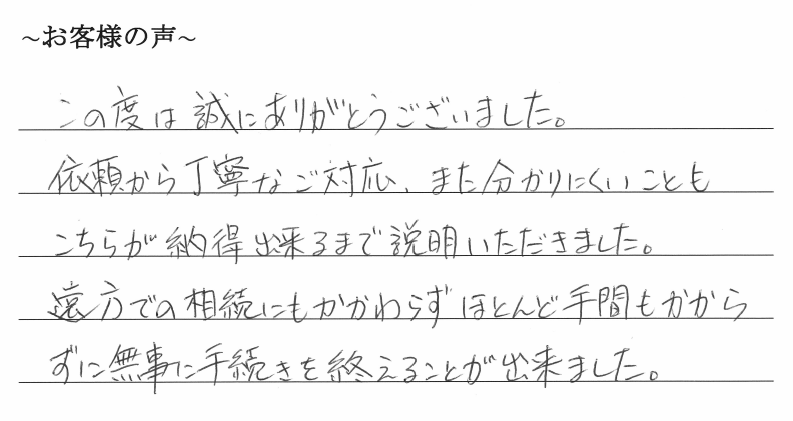 ~お客様の声~
この度は誠にありがとうございました。
依頼から丁寧なご対応、また分かりにくいことも
こちらが納得出来るまで説明いただきました。
遠方での相続にもかかわらずほとんど手間もかから
ずに無事に手続きを終えることが出来ました。